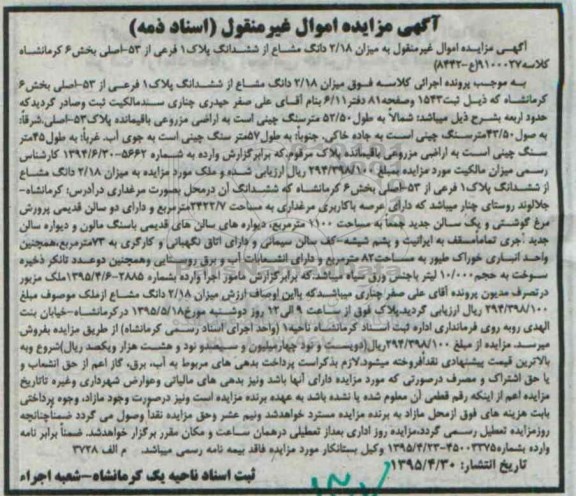 آگهی مزایده اموال غیرمنقول (اسناد ذمه)
آگهی مزایده اموال غیرمنقول به میزان ۲/۱۸ دانگ مشاع از ششدانگ پلاک۱ فرعی از ۵۳-اصلی بخش۶ کرمانشاه
کلاسه۹۱۰۰۰۳۷(ع-۸۴۴۲)
به موجب پرونده اجرائی کلاسه فوق میزان ۲/۱۸ دانگ مشاع از ششدانگ پلاک۱ فرعی از ۵۳-اصلی بخش۶
کرمانشاه که ذیل ثبت۱۵۴۳ وصفحه۸۱ دفتر۶/۱۱ بنام آقای علی صفر حیدری چناری سندمالکیت ثبت وصادر گردیدکه
حدود اربعه بشرح ذیل میباشد: شمالاً به طول ۵۲/۵۰ مترسنگ چینی است به اراضی مزروعی باقیمانده پلاک۵۳-اصلی.شرقاً:
به صول۴۳/۵۰مترسنگ چینی است به جاده خاکی. جنوباً: به طول۵۷متر سنگ چینی است به جوی آب. غرباً: به طول۴۵متر
سنگ چینی است به اراضی مزروعی باقیمانده پلاک مرقوم.که برابرگزارش وارده به شماره ۵۶۶۲-۱۳۹۴/۶/۳۰ کارشناس
رسمی میزان مالکیت مورد مزایده بمبلغ ۲۹۴/۳۹۸/۱۰۰ ریال ارزیابی شده و ملک مورد مزایده به میزان ۲/۱۸ دانگ مشاع
از ششدانگ پلاک۱ فرعی از ۵۳-اصلی بخش۶ کرمانشاه که ششدانگ آن درمحل بصورت مرغداری درآدرس: کرمانشاه-
جلالوند روستای چنار میباشد که دارای عرصه باکاربری مرغداری به مساحت ۲۴۲۲/۷مترمربع و دارای دو سالن قدیمی پرورش
مرغ گوشتی و یک سالن جدید جمعاً به مساحت ۱۱۰۰ مترمربع، دیواره های سالن های قدیمی باسنگ مالون و دیواره سالن
جدید آجری تماماًمسقف به ایرانیت و پشم شیشه-کف سالن سیمانی و دارای اتاق نگهبانی و کارگری به ۷۳مترمربع.همچنین
واحد انباری خوراک طیور به مساحت۸۲ مترمربع و دارای انشعابات آب و برق روستایی وهمچنین دوعدد تانکر ذخیره
سوخت به حجم۱۰/۰۰۰ لیتر باجنس ورق سیاه میباشدکه برابرگزارش مامور اجرا وارده بشماره ۲۸۸۵-۱۳۹۵/۴/۶ملک مزبور
درتصرف مدیون پرونده آقای علی صفر چناری میباشدکه بااین اوصاف ارزش میزان ۲/۱۸ دانگ مشاع ازملک موصوف مبلغ
۲۹۴/۳۹۸/۱۰۰ ریال ارزیابی گردید.پلاک فوق از ساعت ۹ الی ۱۲ روز دوشنبه مورخ۱۳۹۵/۵/۱۸ درکرمانشاه-خیابان بنت
الهدی روبه روی فرمانداری اداره ثبت اسناد کرمانشاه ناحیه۱ (واحد اجرای اسناد رسمی کرمانشاه) از طریق مزایده بفروش
میرسد. مزایده از مبلغ ۲۹۴/۳۹۸/۱۰۰ریال(دویست و نود چهارمیلیون و سیصدو نود و هشت هزار ویکصد ریال)شروع وبه
بالاترین قیمت پیشنهادی نقداًفروخته میشود.لازم بذکراست پرداخت بدهی های مربوط به آب، برق، گاز اعم از حق انشعاب و
یا حق اشتراک و مصرف درصورتی که مورد مزایده دارای آنها باشد ونیز بدهی های مالیاتی وعوارض شهرداری وغیره تاتاریخ
مزایده اعم از اینکه رقم قطعی آن معلوم شده یا نشده باشد به عهده برنده مزایده است ونیز درصورت وجود مازاد، وجوه پرداختی
بابت هزینه های فوق ازمحل مازاد به برنده مزایده مسترد خواهدشد ونیم عشر وحق مزایده نقداً وصول می گردد ضمناچنانچه
روزمزایده تعطیل رسمی گردد،مزایده روز اداری بعداز تعطیلی درهمان ساعت و مکان مقرر برگزار خواهدشد. ضمناً برابر نامه
وارده بشماره۴۵۰۰۳۳۷۵-۱۳۹۵/۴/۲۳ وکیل بستانکار مورد مزایده فاقد بیمه نامه رسمی میباشد. م الف ۳۷۲۸
تاریخ انتشار: ۱۳۹۵/۴/۳۰
ثبت اسناد ناحیه یک کرمانشاه-شعبه اجراء